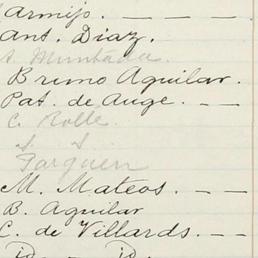 Armijo. - - - -
Ant. Diaz.
A. Muntada.
Bruno Aguilar.
Pat. de Auge. - -
C. Rolle.
S. S.
Farguen
M. Mateos. - - -
B. Aguilar
C. de Villards. - -
id. - id. - -